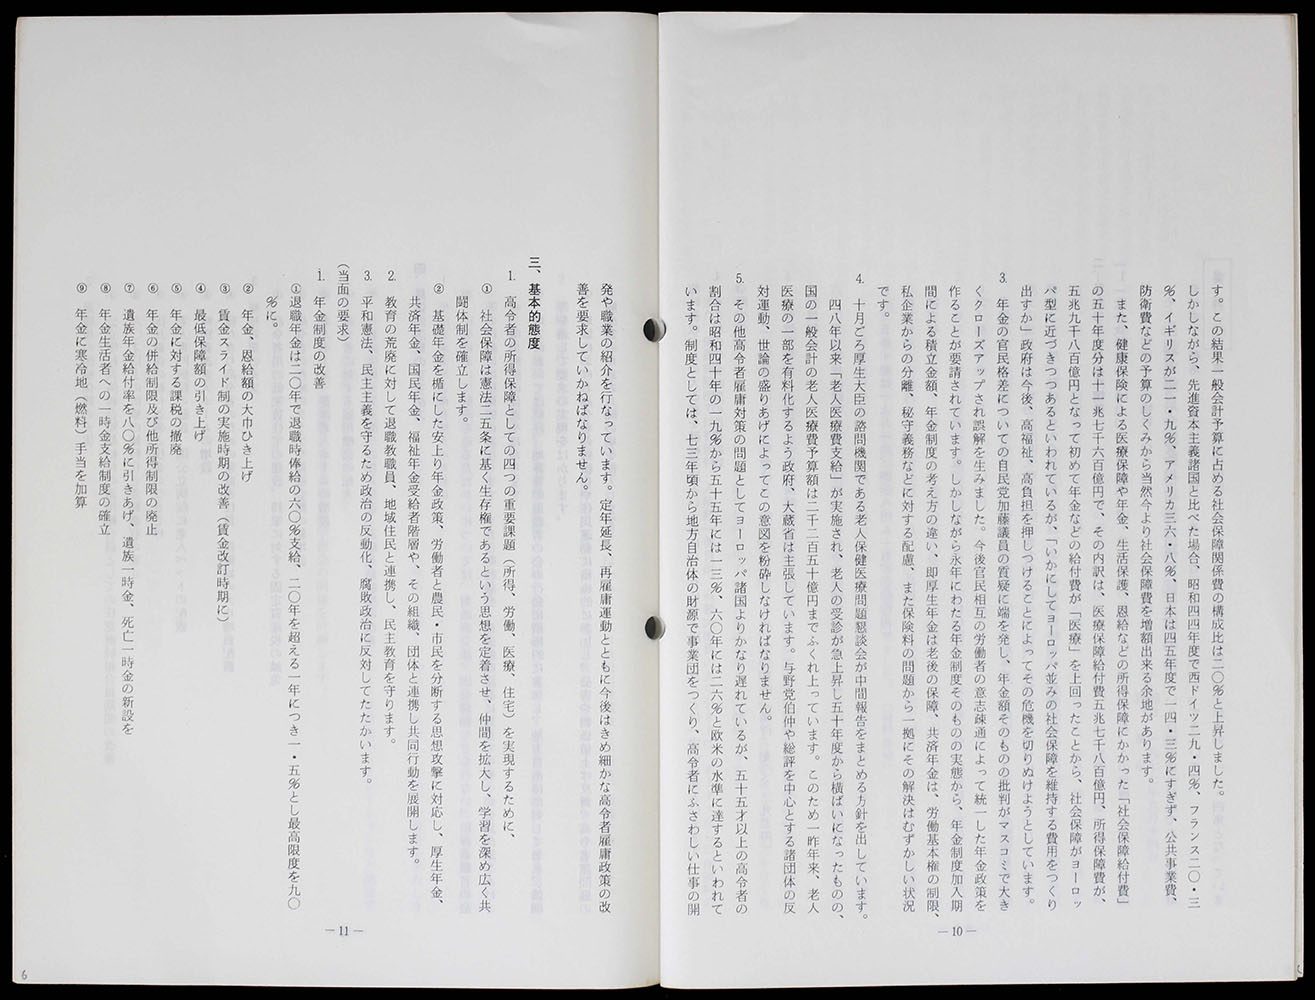 す。この結果一般会計予算に占める社会保障関係費の構成比は二〇％と上昇しました。
しかしながら、先進資本主義諸国と比べた場合、昭和四四年度で西ドイツ二九・四％、フランス二〇・三
％、イギリスが二一・九％、アメリカ三六・八％、日本は四五年度で一四・三％にすぎず、公共事業費、
防衛費などの予算のしくみから当然今より社会保障費を増額出来る余地があります。
また、健康保険による医療保障や年金、生活保護、恩給などの所得保障にかかった「社会保障給付費」
の五十年度分は十一兆七千六百億円で、その内訳は、医療保障給付費五兆七千八百億円、所得保障費が、
五兆九千八百億円となって初めて年金などの給付費が「医療」を上回ったことから、社会保障がヨーロッ
パ型に近づきつつあるといわれているが、「いかにしてヨーロッパ並みの社会保障を維持する費用をつくり
出すか」政府は今後、高福祉、高負担を押しつけることによってその危機を切りぬけようとしています。
3. 年金の官民格差についての自民党加藤議員の質疑に端を発し、年金額そのものの批判がマスコミで大き
くクローズアップされ誤解を生みました。今後官民相互の労働者の意志疎通によって統一した年金政策を
作ることが要請されています。しかしながら永年にわたる年金制度そのものの実態から、年金制度加入期
間による積立金額、年金制度の考え方の違い、即厚生年金は老後の保障、共済年金は、労働基本権の制限、
私企業からの分離、秘守義務などに対する配慮、また保険料の問題から一拠にその解決はむずかしい状況
です。
4. 十月ごろ厚生大臣の諮問機関である老人保健医療問題懇談会が中間報告をまとめる方針を出しています。
四八年以来「老人医療費支給」が実施され、老人の受診が急上昇し五十年度から横ばいになったものの、
国の一般会計の老人医療費予算額は二千二百五十億円までふくれ上っています。このため一昨年来、老人
医療の一部を有料化するよう政府、大蔵省は主張しています。与野党伯仲や総評を中心とする諸団体の反
対運動、世論の盛りあげによってこの意図を粉砕しなければなりません。
5. その他高令者雇庸対策の問題としてヨーロッパ諸国よりかなり遅れているが、五十五才以上の高令者の
割合は昭和四十年の一九％から五十五年には一三％、六〇年には二六％と欧米の水準に達するといわれて
います。制度としては、七三年頃から地方自治体の財源で事業団をつくり、高令者にふさわしい仕事の開
― 10 ―
発や職業の紹介を行なっています。定年延長、再雇庸運動とともに今後はきめ細かな高令者雇庸政策の改
善を要求していかねばなりません。
三、基本的態度
1. 高令者の所得保障としての四つの重要課題（所得、労働、医療、住宅）を実現するために、
① 社会保障は憲法二五条に基く生存権であるという思想を定着させ、仲間を拡大し、学習を深め広く共
闘体制を確立します。
② 基礎年金を楯にした安上り年金政策、労働者と農民・市民を分断する思想攻撃に対応し、厚生年金、
共済年金、国民年金、福祉年金受給者階層や、その組織、団体と連携し共同行動を展開します。
2. 教育の荒廃に対して退職教職員、地域住民と連携し、民主教育を守ります。
3. 平和憲法、民主主義を守るため政治の反動化、腐敗政治に反対してたたかいます。
（当面の要求）
1. 年金制度の改善
①退職年金は二〇年で退職時俸給の六〇％支給、二〇年を超える一年につき一・五％とし最高限度を九〇
％に。
② 年金、恩給額の大巾ひき上げ
③ 賃金スライド制の実施時期の改善（賃金改訂時期に）
④ 最低保障額の引き上げ
⑤ 年金に対する課税の撤廃
⑥ 年金の併給制限及び他所得制限の廃止
⑦ 遺族年金給付率を八〇％に引きあげ、遺族一時金、死亡一時金の新設を
⑧ 年金生活者への一時金支給制度の確立
⑨ 年金に寒冷地（燃料）手当を加算
― 11 ―
6